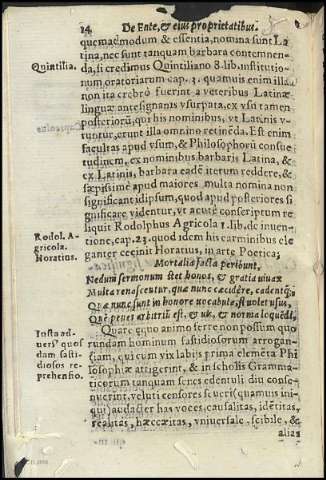 14 De Ente, & eius proprietatibus.
quemadmodum & essentia, nomina sunt La
tina, nec sunt tanquam barbara contemnen-
da, si credimus Quintiliano 8. lib. institutio-
num oratoriarum cap. 3. quamuis enim illa
non ita crebrò fuerint a veteribus Latinæ
linguæ antesignanis vsurpata, ex vsu tamen
posteriorũ, qui his nominibus, vt Latinis v-
tuntur, erunt illa omnino retinẽda. Est enim
facultas apud vsum, & Philosophorũ consue
tudinem, ex nominibus barbaris Latina, &
ex Latinis, barbara eadẽ iterum reddere, &
sæpissimè apud maiores multa nomina non
significant idipsum, quod apud posteriores si
gnificare videntur, vt acutè conscriptum re
liquit Rodolphus Agricola 1. lib. de inuen-
tione, cap. 23. quod idem his carminibus ele
ganter cecinit Horatius, in arte Poetica;
Mortalia facta peribunt,
Nedum sermonum stet honos, & gratia viuax
Multa renascentur, quæ nunc cæcidere, cadentq́;
Quæ nunc sunt in honore vocabula, si volet vsus,
Quẽ penes arbitriũ est, & uis, & norma loquẽdi.
Quare equo animo ferre non possum quo
rundam hominum fastidiosorum arrogan-
tiam, qui cum vix labijs prima elemẽta Phi
losophiæ attigerint, & in scholis Gramma-
ticorum tanquam senes edentuli diu conse-
nuerint, veluti censores seueri (quamuis ini-
qui) audacter has voces, causalitas, idẽtitas,
realitas, hæcæitas, vniuersale, scibile, &
alias
Quintilia.
Rodol. A-
gricola.
Horatius.
Iusta ad-
uersꝰ quos
dam fasti-
diosos re-
prehensio.